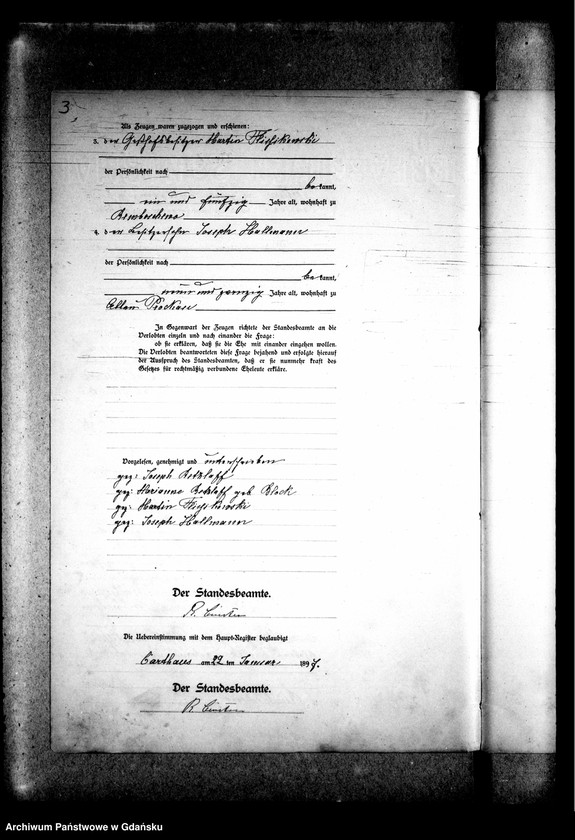 3,
Als Zeugen waren zugezogen und erschienen:
3. der Geschäftsbesitzer Martin
der Persönlichkeit nach
bekannt,
ein und fünfzig Jahre alt, wohnhaft zu
4. der Besitzersohn Joseph Hallmann
der Persönlichkeit nach
bekannt,
neun und zwanzig Jahre alt, wohnhaft zu
Abbau Prockau.
In Gegenwart der Zeugen richtete der Standesbeamte an die
Verlobten einzeln und nach einander die Frage:
ob sie erklären, daß sie die Ehe mit einander eingehen wollen.
Die Verlobten beantworteten diese Frage bejahend und erfolgte hierauf
der Ausspruch des Standesbeamten, daß er sie nunmehr kraft des
Gesetzes für rechtmäßig verbundene Eheleute erkläre.
Vorgelesen, genehmigt und unterschrieben
gez: Joseph Retzlaff
gez: Marianne Retzlaff geb. Block
gez: Martin
gez: Joseph Hallmann
Der Standesbeamte.
Die Uebereinstimmung mit dem Haupt-Register beglaubigt
Carthaus am 22 ten Januar 1897.
Der Standesbeamte.
Archiwum Państwowe w Gdańsku